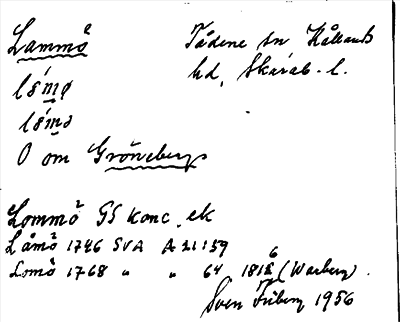 Lammö Tådene sn Kållands
hd, Skarab. l.
lǻmø
lǻmə
O om Gröneberg
Lommö GS konc. ek
Låmö 1746 SVA A 21:159
Lomö 1768 " " 64 1818 6 (Warberg).
Sven Friberg 1956